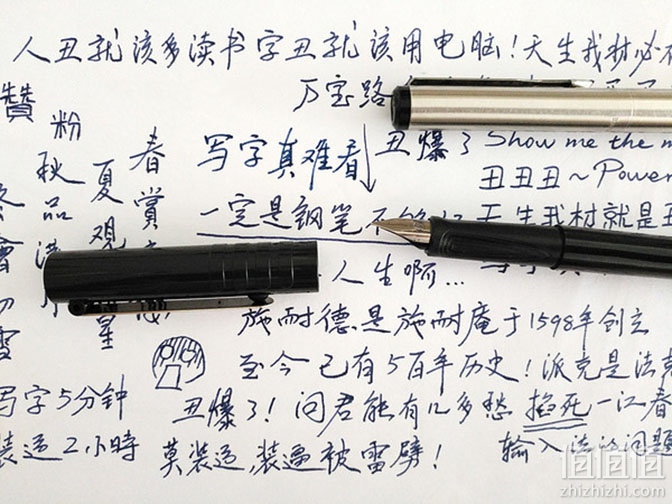 人丑就该多读书字丑就该用电脑！天生我材必有
万宝路
赞
粉
秋品
夏观
星
春赏
写字真难看
丑爆了 Show me the m
丑丑丑～Power
一定是钢笔不够
天生我材就是丑
人生啊…
施耐德是施耐庵于1598年创立
至今已有5百年历史！派克是法克
写字5分钟
丑爆了！问君能有几多愁 掐死一江春
装逼2小時
莫装逼，装逼被雷劈！
输入法的问题
值值值
zhizhizhi.com